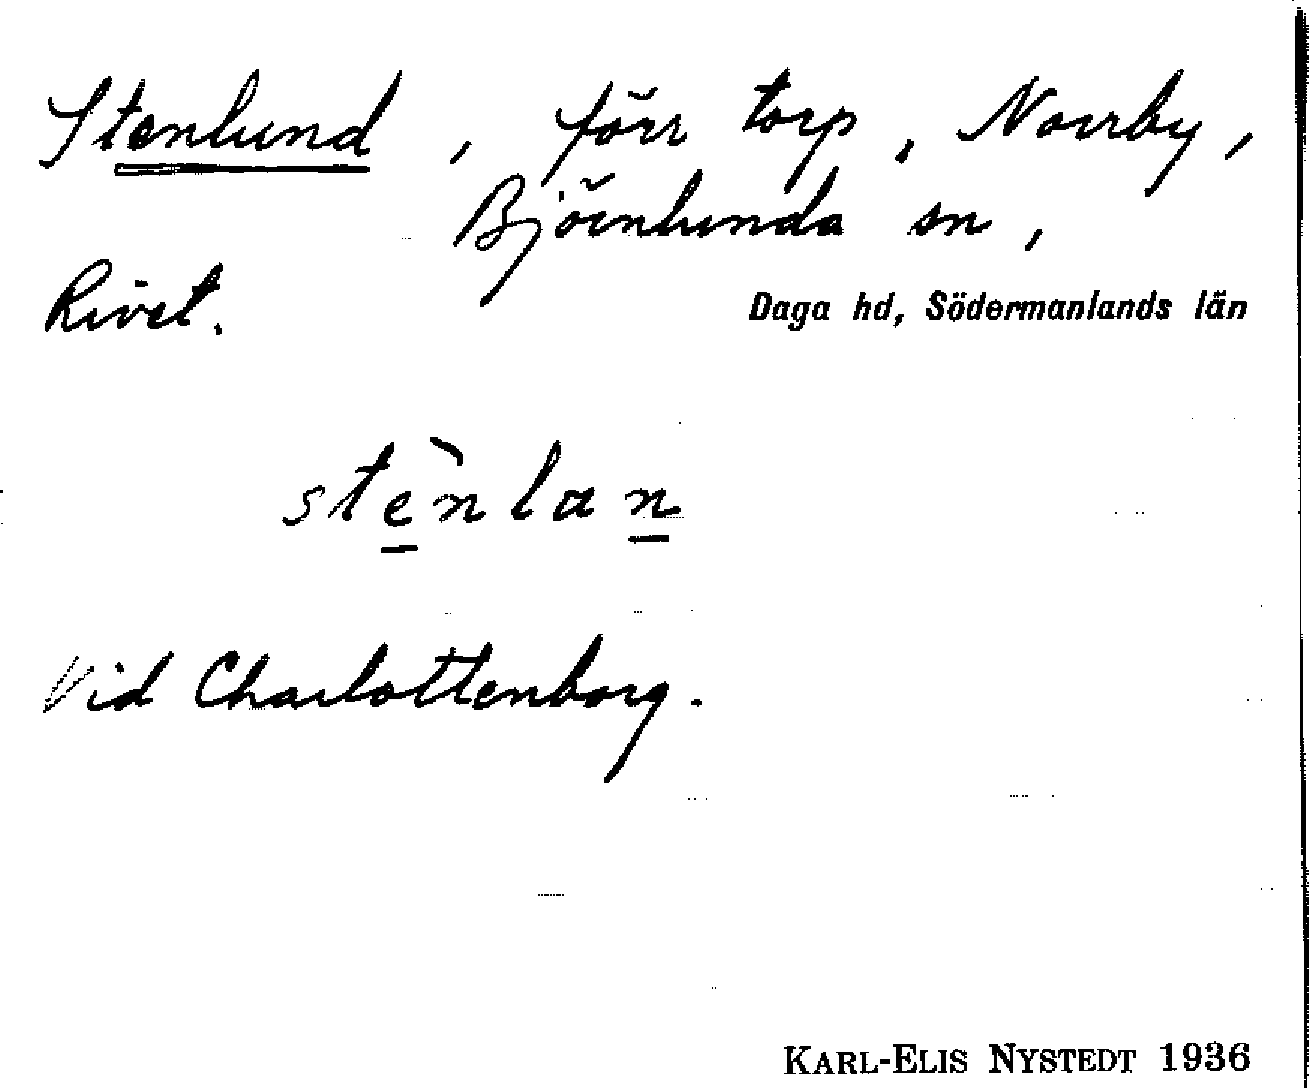 Stenlund, förr torp, Norrby,
Björnlunda sn,
Rivet.
Daga hd, Södermanlands län
stè̱nlan̲
Vid Charlottenborg.
KARL-ELIS NYSTEDT 1936